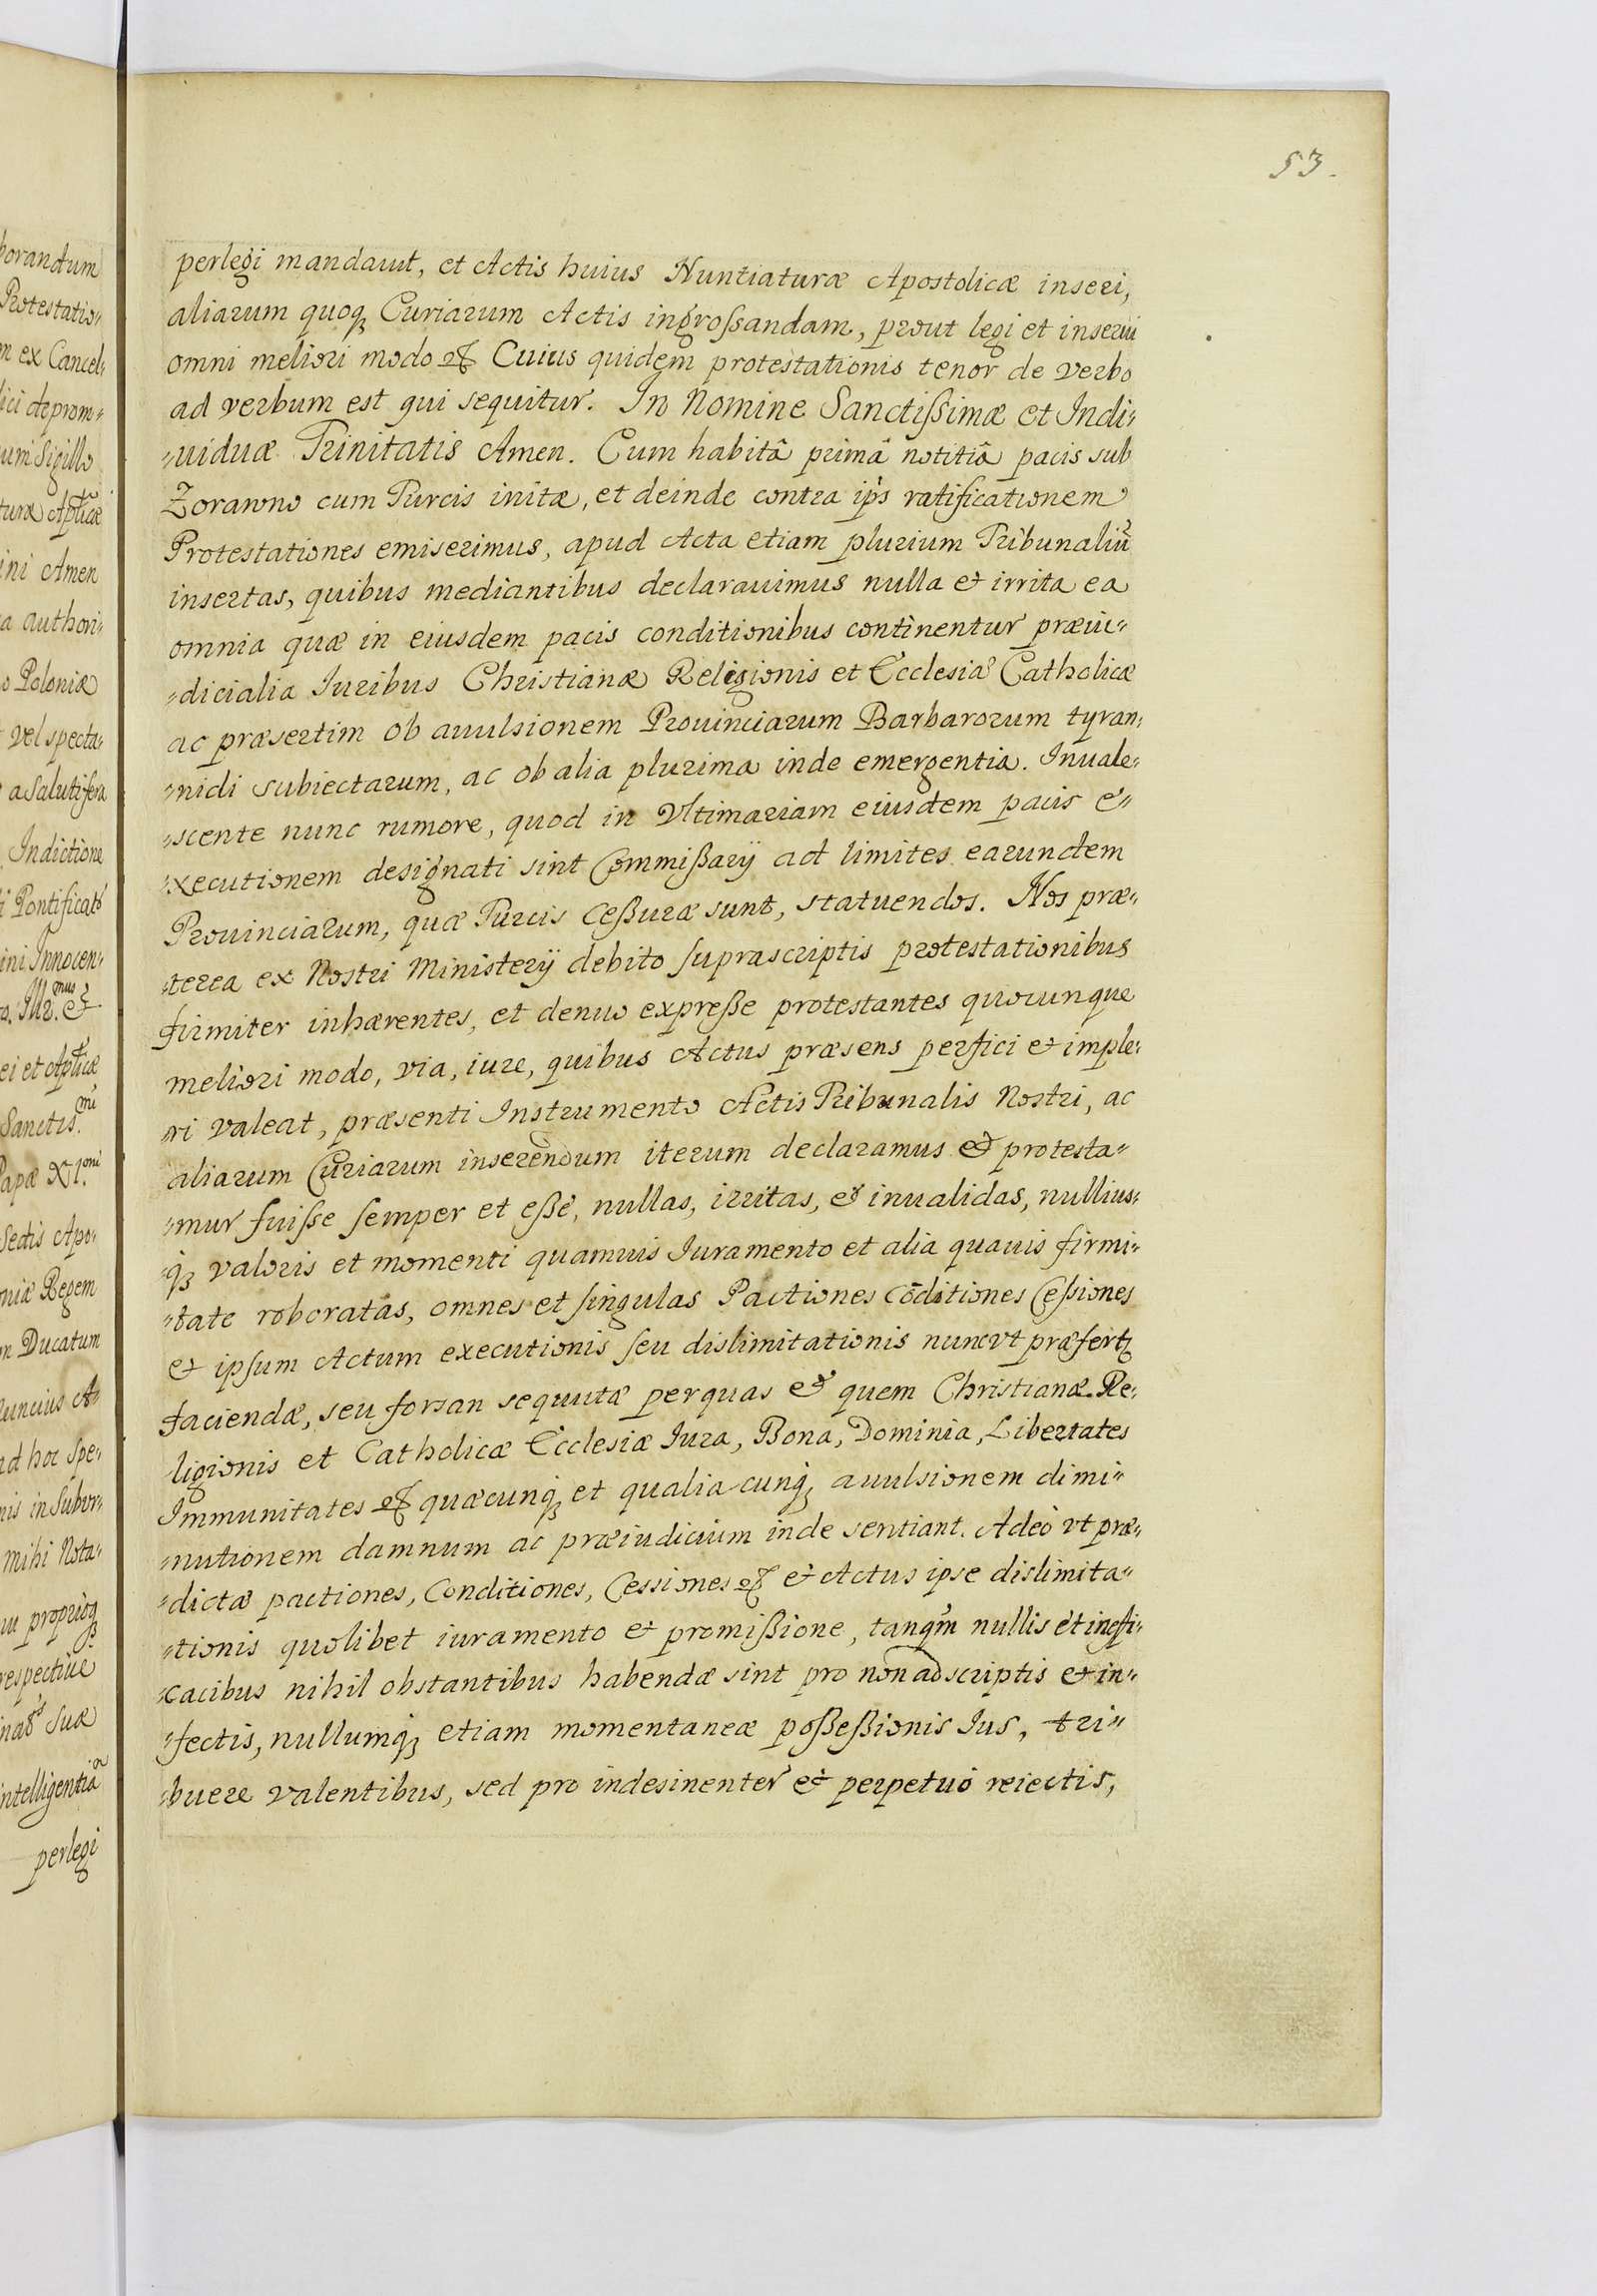 53.
perlegi mandauit, et Actis huius Nuntiaturæ Apostolicæ inseri,
aliarum quoq; Curiarum Actis ingroſsandam, prout legi et inserui
omni meliori modo etc. Cuius quidem protestationis tenor de verbo
ad verbum est qui sequitur. In Nomine Sanctiſsimæ et Indi-
-uiduæ Trinitatis Amen. Cum habitâ primâ notitiâ pacis sub
Zorawno cum Turcis initæ, et deinde contra ips ratificationem
Protestationes emiserimus, apud Acta etiam plurium Tribunaliũ
insertas, quibus mediantibus declarauimus nulla et irrita ea
omnia quæ in eiusdem pacis conditionibus continentur præiu-
-dicialia Iuribus Christianæ Religionis et Ecclesiæ Catholicæ
ac præsertim ob auulsionem Prouinciarum Barbarorum tyran-
-nidi subiectarum, ac ob alia plurima inde emergentia. Inuale-
-scente nunc rumore, quod in Vltimariam eiusdem pacis e-
-xecutionem designati sint Commißarij ad limites earundem
Prouinciarum, quæ Turcis Ceßuræ sunt, statuendos. Nos præ-
-terea ex Nostri Ministerij debito suprascriptis protestationibus
firmiter inhærentes, et denuo expreße protestantes quocunque
meliori modo, via, iure, quibus Actus præsens perfici et imple-
-ri valeat, præsenti Instrumento Actis Tribunalis Nostri, ac
aliarum Curiarum inserendum iterum declaramus et protesta-
-mur fuiſse semper et eße, nullas, irritas, et inualidas, nullius-
-q; valoris et momenti quamuis Iuramento et alia quauis firmi-
-tate roboratas, omnes et singulas Pactiones Cõditiones Ceſsiones
et ipsum Actum executionis seu dislimitationis nunc vt præfert;
faciendæ, seu forsan sequutæ per quas et quem Christianæ Re-
ligionis et Catholicæ Ecclesiæ Iura, Bona, Dominia, Libertates
Immunitates etc. quæcunq; et qualiacunq; auulsionem dimi-
-nutionem damnum ac præiudicium inde sentiant. Adeò vt præ-
-dictæ pactiones, Conditiones, Cessiones etc. et Actus ipse dislimita-
-tionis quolibet iuramento et promißione, tanq̃m nullis et ineffi-
-cacibus nihil obstantibus habendæ sint pro non adscriptis et in-
-fectis, nullumq; etiam momentaneæ poßeßionis Ius, tri-
-buere valentibus, sed pro indesinenter et perpetuò reiectis,